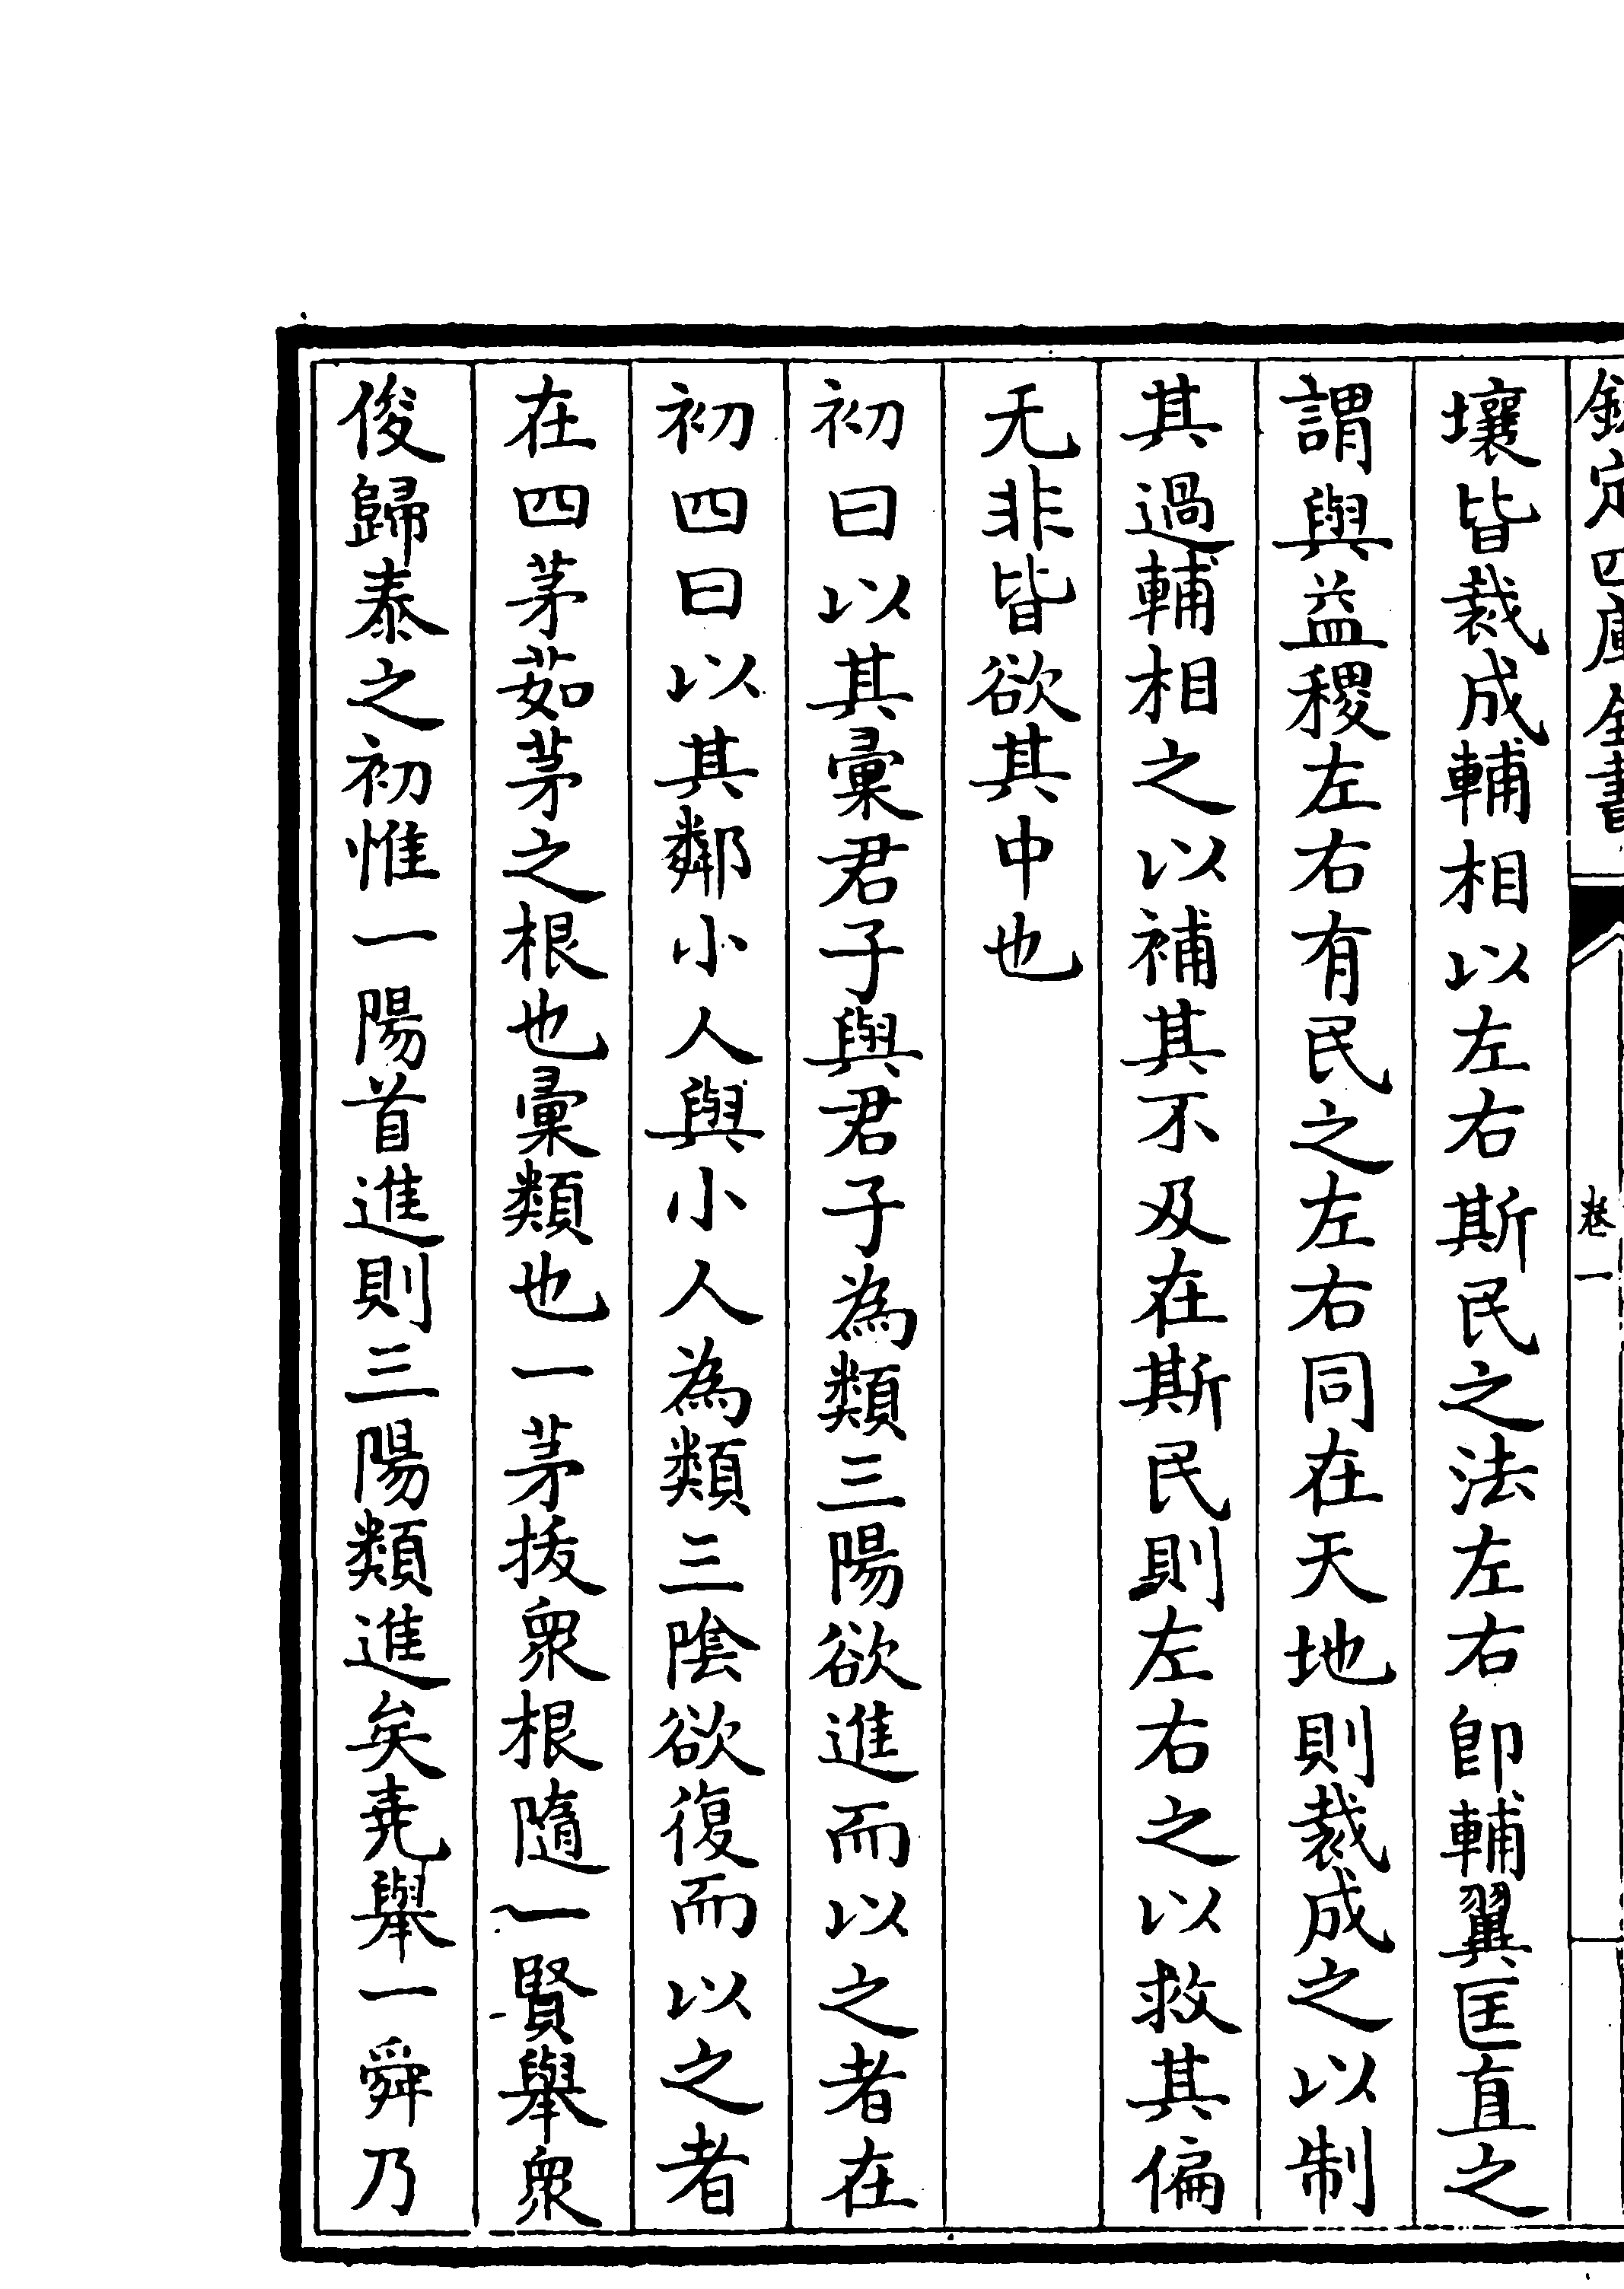 欽定四庫全書 卷一
壤皆裁成輔相以左右斯民之法左右即輔翼匡直之
謂與益稷左右有民之左右同在天地則裁成之以制
其過輔相之以補其不及在斯民則左右之以救其偏
无非皆欲其中也
初曰以其彚君子與君子為類三陽欲進而以之者在
初四曰以其鄰小人與小人為類三陰欲復而以之者
在四茅茹茅之根也彚類也一茅拔衆根隨一賢舉衆
俊歸泰之初惟一陽首進則三陽類進矣堯舉一舜乃